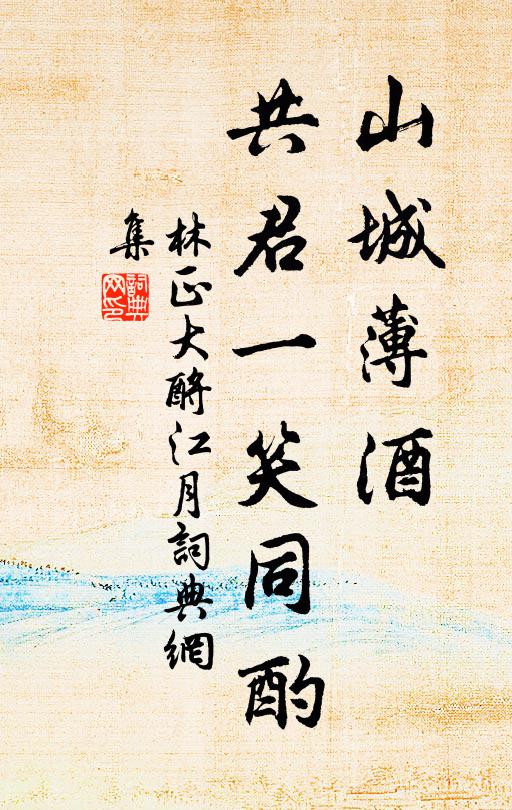 山城薄酒
共君一笑同酌
林正大酹江月詞典網
集
詞典
网印